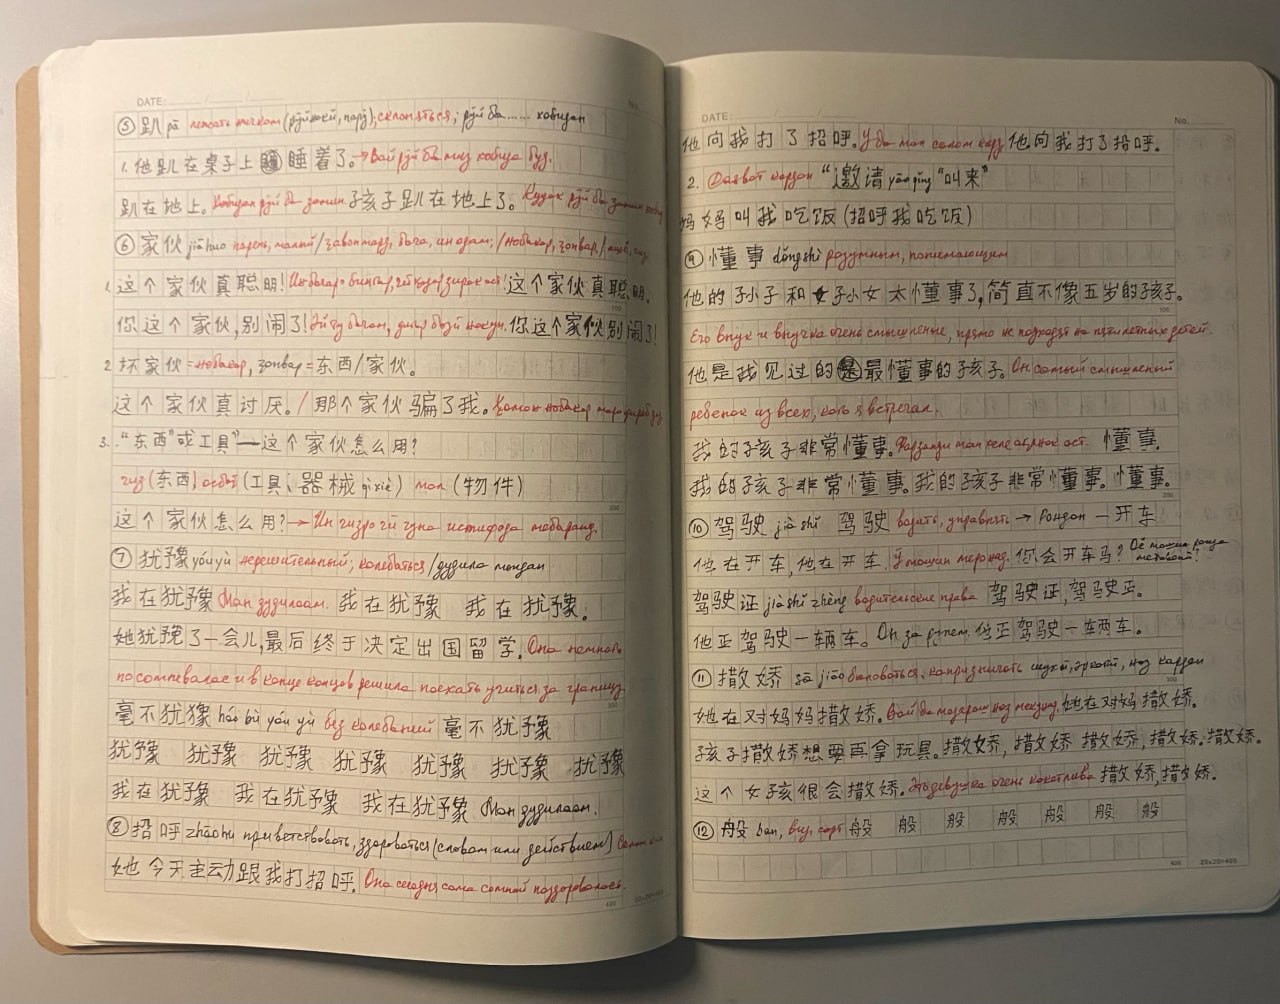 DATE:
No.
⑤ 趴 pā лежать ничком (рӯйнокӣ, парӯ); склоняться; рӯй ба ...... хобидан
1. 他趴在桌子上睡着了。→ Вай рӯй ба миз хобида буд.
趴在地上。Хобидан рӯй ба замин. 孩子趴在地上了。Кудак рӯй ба замин
⑥ 家伙 jiāhuo парень, малый / завонмард, бача, ин одам; / нобакор, зонвар, /
1. 这个家伙真聪明! Ин бачаро бинигар, чӣ қадар зирак аст! 这个家伙真聪明。
你这个家伙,别闹了! Эй ту бачам, дигар бозӣ накун. 你这个家伙别闹了!
2 坏家伙 = нобакор, зонвар = 东西/家伙。
这个家伙真讨厌。/ 那个家伙骗了我。Хамон нобакор маро
3. “东西”或工具” — 这个家伙怎么用?
чиз (东西) асбоб (工具、器械 qìxiè) мол (物件)
这个家伙怎么用? → Ин чизро чӣ гуна истифода мебаранд.
⑦ 犹豫 yóuyù нерешительный; колебаться / дудила мондан
我在犹豫 Ман дудилаам. 我在犹豫 我在犹豫。
她犹豫了一会儿,最后终于决定出国留学。Она немного
посомневалась и в конце концов решила поехать учиться за границу
毫不犹豫 háo bù yóu yù без колебаний 毫不犹豫
犹豫 犹豫 犹豫 犹豫 犹豫 犹豫 犹豫
我在犹豫 我在犹豫 我在犹豫. Ман дудилаам.
⑧ 招呼 zhāohu приветствовать, здороваться (словом или действием) Салом
她今天主动跟我打招呼。Она сегодня сама со мной поздоровалась.
400 20x20=400
DATE:
No.
他向我打了招呼。Ӯ ба ман салом кард 他向我打了招呼。
2. Даъват кардан “邀请 yāo qǐng “叫来”
妈妈叫我吃饭(招呼我吃饭)
⑨ 懂事 dǒngshì разумным, понимающим
他的孙子和孙女太懂事了,简直不像五岁的孩子。
Его внук и внучка очень смышленые, прямо не подходят на пятилетних детей.
他是我见过的最懂事的孩子。Он самый смышленый
ребенок из всех, кого я встречал.
我的孩子非常懂事。Фарзанди ман хеле оқилона аст. 懂事.
我的孩子非常懂事。我的孩子非常懂事。懂事。
⑩ 驾驶 jià shǐ 驾驶 водить, управлять → Рондан — 开车
他在开车,他在开车. Ӯ мошин меронад. 你会开车吗?
驾驶证 jiàshǐ zhèng водительские права 驾驶证,驾驶证。
他正驾驶一辆车。Он за рулем. 他正驾驶一辆车。
⑪ 撒娇 sā jiāo баловаться, капризничать шухӣ, эркагӣ, ноз кардан
她在对妈妈撒娇。Вай ба модараш ноз мекунад. 她在对妈撒娇。
孩子撒娇想要再拿玩具。撒娇,撒娇 撒娇,撒娇.撒娇。
这个女孩很会撒娇。Эта девушка очень кокетлива 撒娇,撒娇.
⑫ 般 bān, вид, сорт 般 般 般 般 般 般 般
400 20x20=400